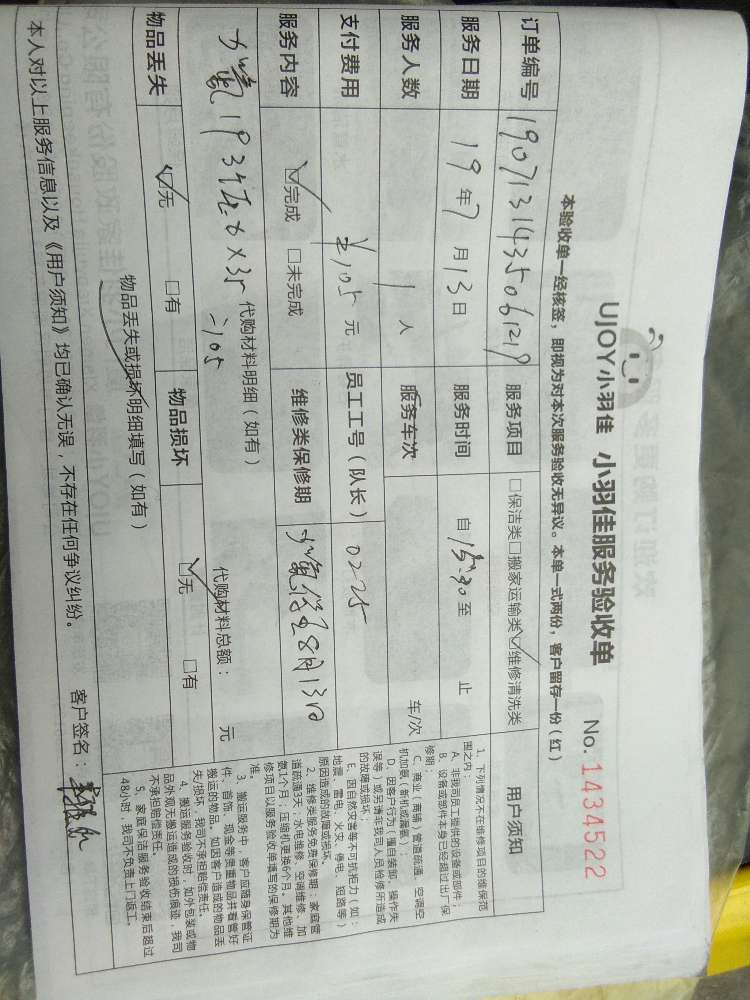 UJOY小羽佳 小羽佳服务验收单
No. 1434522
本验收单一经核签，即视为对本次服务验收无异议。本单一式两份，客户留存一份（红）
订单编号 服务项目 □保洁类□搬家运输类☑维修清洗类
服务日期 19年7月13日 服务时间 自15:30至 止
服务人数 1人 服务车次 车/次
支付费用 ¥105元 员工工号（队长） 0225
服务内容 ☑完成 □未完成 维修类保修期 加氟保至8月13日
代购材料明细（如有） 代购材料总额： 元
加氟 =105
物品丢失 ☑无 □有 物品损坏 ☑无 □有
物品丢失或损坏明细填写（如有）
本人对以上服务信息以及《用户须知》均已确认无误，不存在任何争议纠纷。
客户签名：
用户须知
1、下列情况不在维修项目的维保范
围之内：
A、非我司员工提供的设备或部件；
B、设备或部件本身已经超过出厂保
修期；
C、商业（商铺）管道疏通、空调空
机加氟（新机或漏氟）；
D、因客户行为（擅自装卸、操作失
误等）或另请非我司人员检修所造成
的故障或损坏；
E、因自然灾害等不可抗拒力（如：
地震、雷电、火灾、停电、短路等）
原因造成的故障或损坏。
2、维修类服务免费保修期：家庭管
道疏通3天；水电维修、空调维修、加
氨1个月；压缩机更换6个月，其他维
修项目以服务验收单填写的保修期为
准。
3、搬运服务中，客户应随身保管证
件、首饰、现金等贵重物品并看管好
搬运的物品。如因客户造成的物品丢
失/损坏，我司不承担赔偿责任。
4、搬运服务验收时，如外包装或物
品外观无搬运造成的损伤痕迹，我司
不承担赔偿责任。
5、家庭保洁服务验收结束后超过
48小时，我司不负责上门返工。